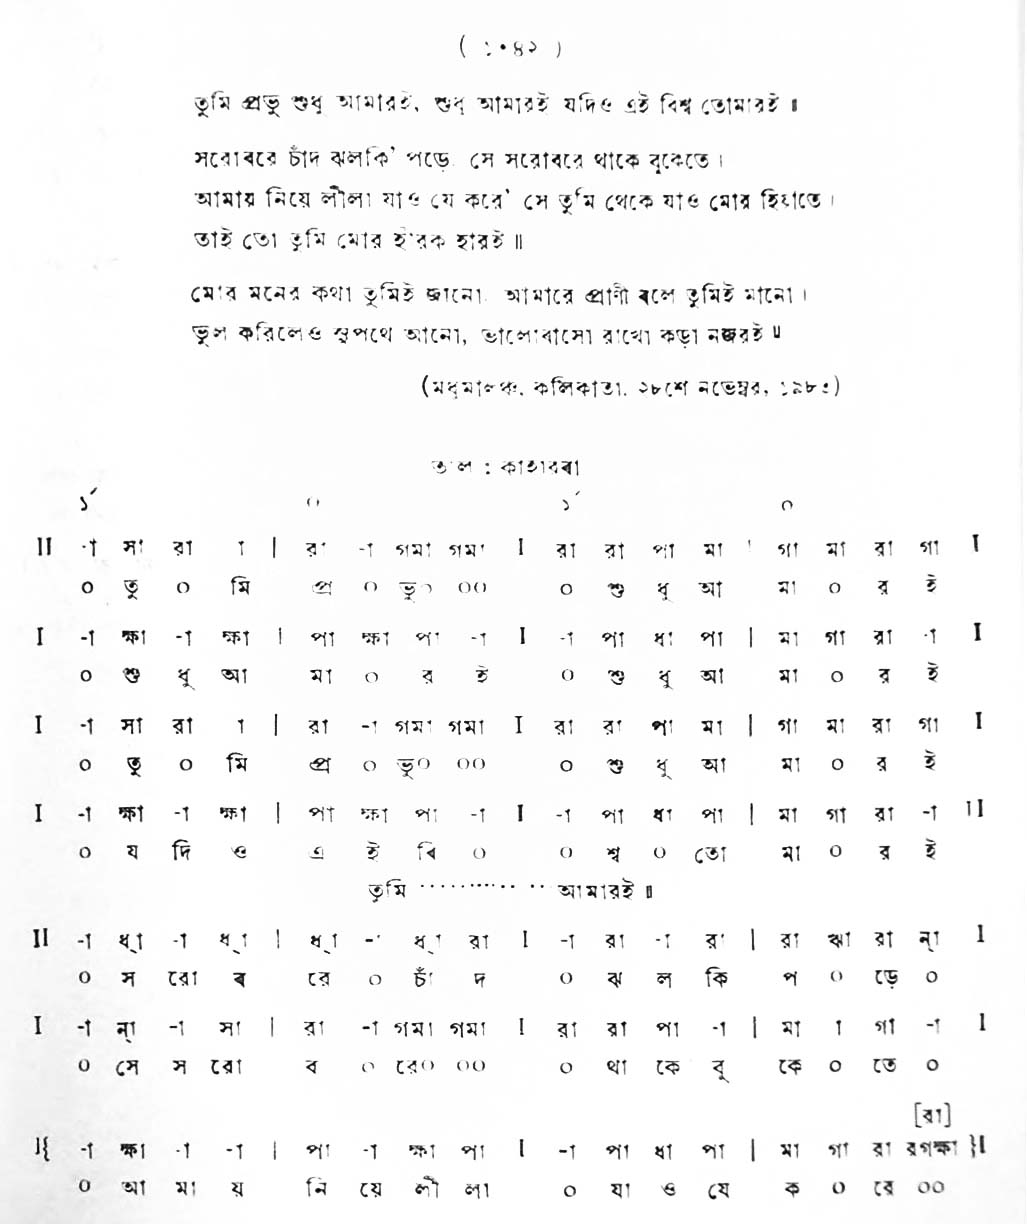 ( ১০৪২ )
তুমি প্রভু শুধু আমারই, শুধু আমারই যদিও এই বিশ্ব তোমারই ॥
সরোবরে চাঁদ ঝলকি' পড়ে, সে সরোবরে থাকে বুকেতে।
আমায় নিয়ে লীলা যাও যে করে' সে তুমি থেকে যাও মোর হিয়াতে।
তাই তো তুমি মোর হীরক হারই ॥
মোর মনের কথা তুমিই জানো, আমারে প্রাণী বলে তুমিই মানো।
ভুল করিলেও সুপথে আনো, ভালোবাসো রাখো কড়া নজরই ॥
(মধুমালঞ্চ, কলিকাতা, ২৮শে নভেম্বর, ১৯৮৩)
তাল : কাহারবা
১´ ০ ১´ ০
II -া সা রা া | রা -া গমা গমা I রা রা পা মা | গা মা রা গা I
০ তু ০ মি প্র ০ ভু০ ০০ ০ শু ধু আ মা ০ র ই
I -া ক্ষা -া ক্ষা | পা ক্ষা পা -া I -া পা ধা পা | মা গা রা -া I
০ শু ধু আ মা ০ র ই ০ শু ধু আ মা ০ র ই
I -া সা রা া | রা -া গমা গমা I রা রা পা মা | গা মা রা গা I
০ তু ০ মি প্র ০ ভু০ ০০ ০ শু ধু আ মা ০ র ই
I -া ক্ষা -া ক্ষা | পা ক্ষা পা -া I -া পা ধা পা | মা গা রা -া II
০ য দি ও এ ই বি ০ ০ শ্ব ০ তো মা ০ র ই
তুমি ·············· আমারই ॥
II -া ধ্া -া ধ্া | ধ্া -া ধ্া রা I -া রা -া রা | রা ঋা রা ন্া I
০ স রো ব রে ০ চাঁ দ ০ ঝ ল কি প ০ ড়ে ০
I -া ন্া -া সা | রা -া গমা গমা I রা রা পা -া | মা া গা -া I
০ সে স রো ব ০ রে০ ০০ ০ থা কে বু কে ০ তে ০
[রা]
I{ -া ক্ষা -া -া | পা -া ক্ষা পা I -া পা ধা পা | মা গা রা রগক্ষা }I
০ আ মা য় নি য়ে লী লা ০ যা ও যে ক ০ রে ০০